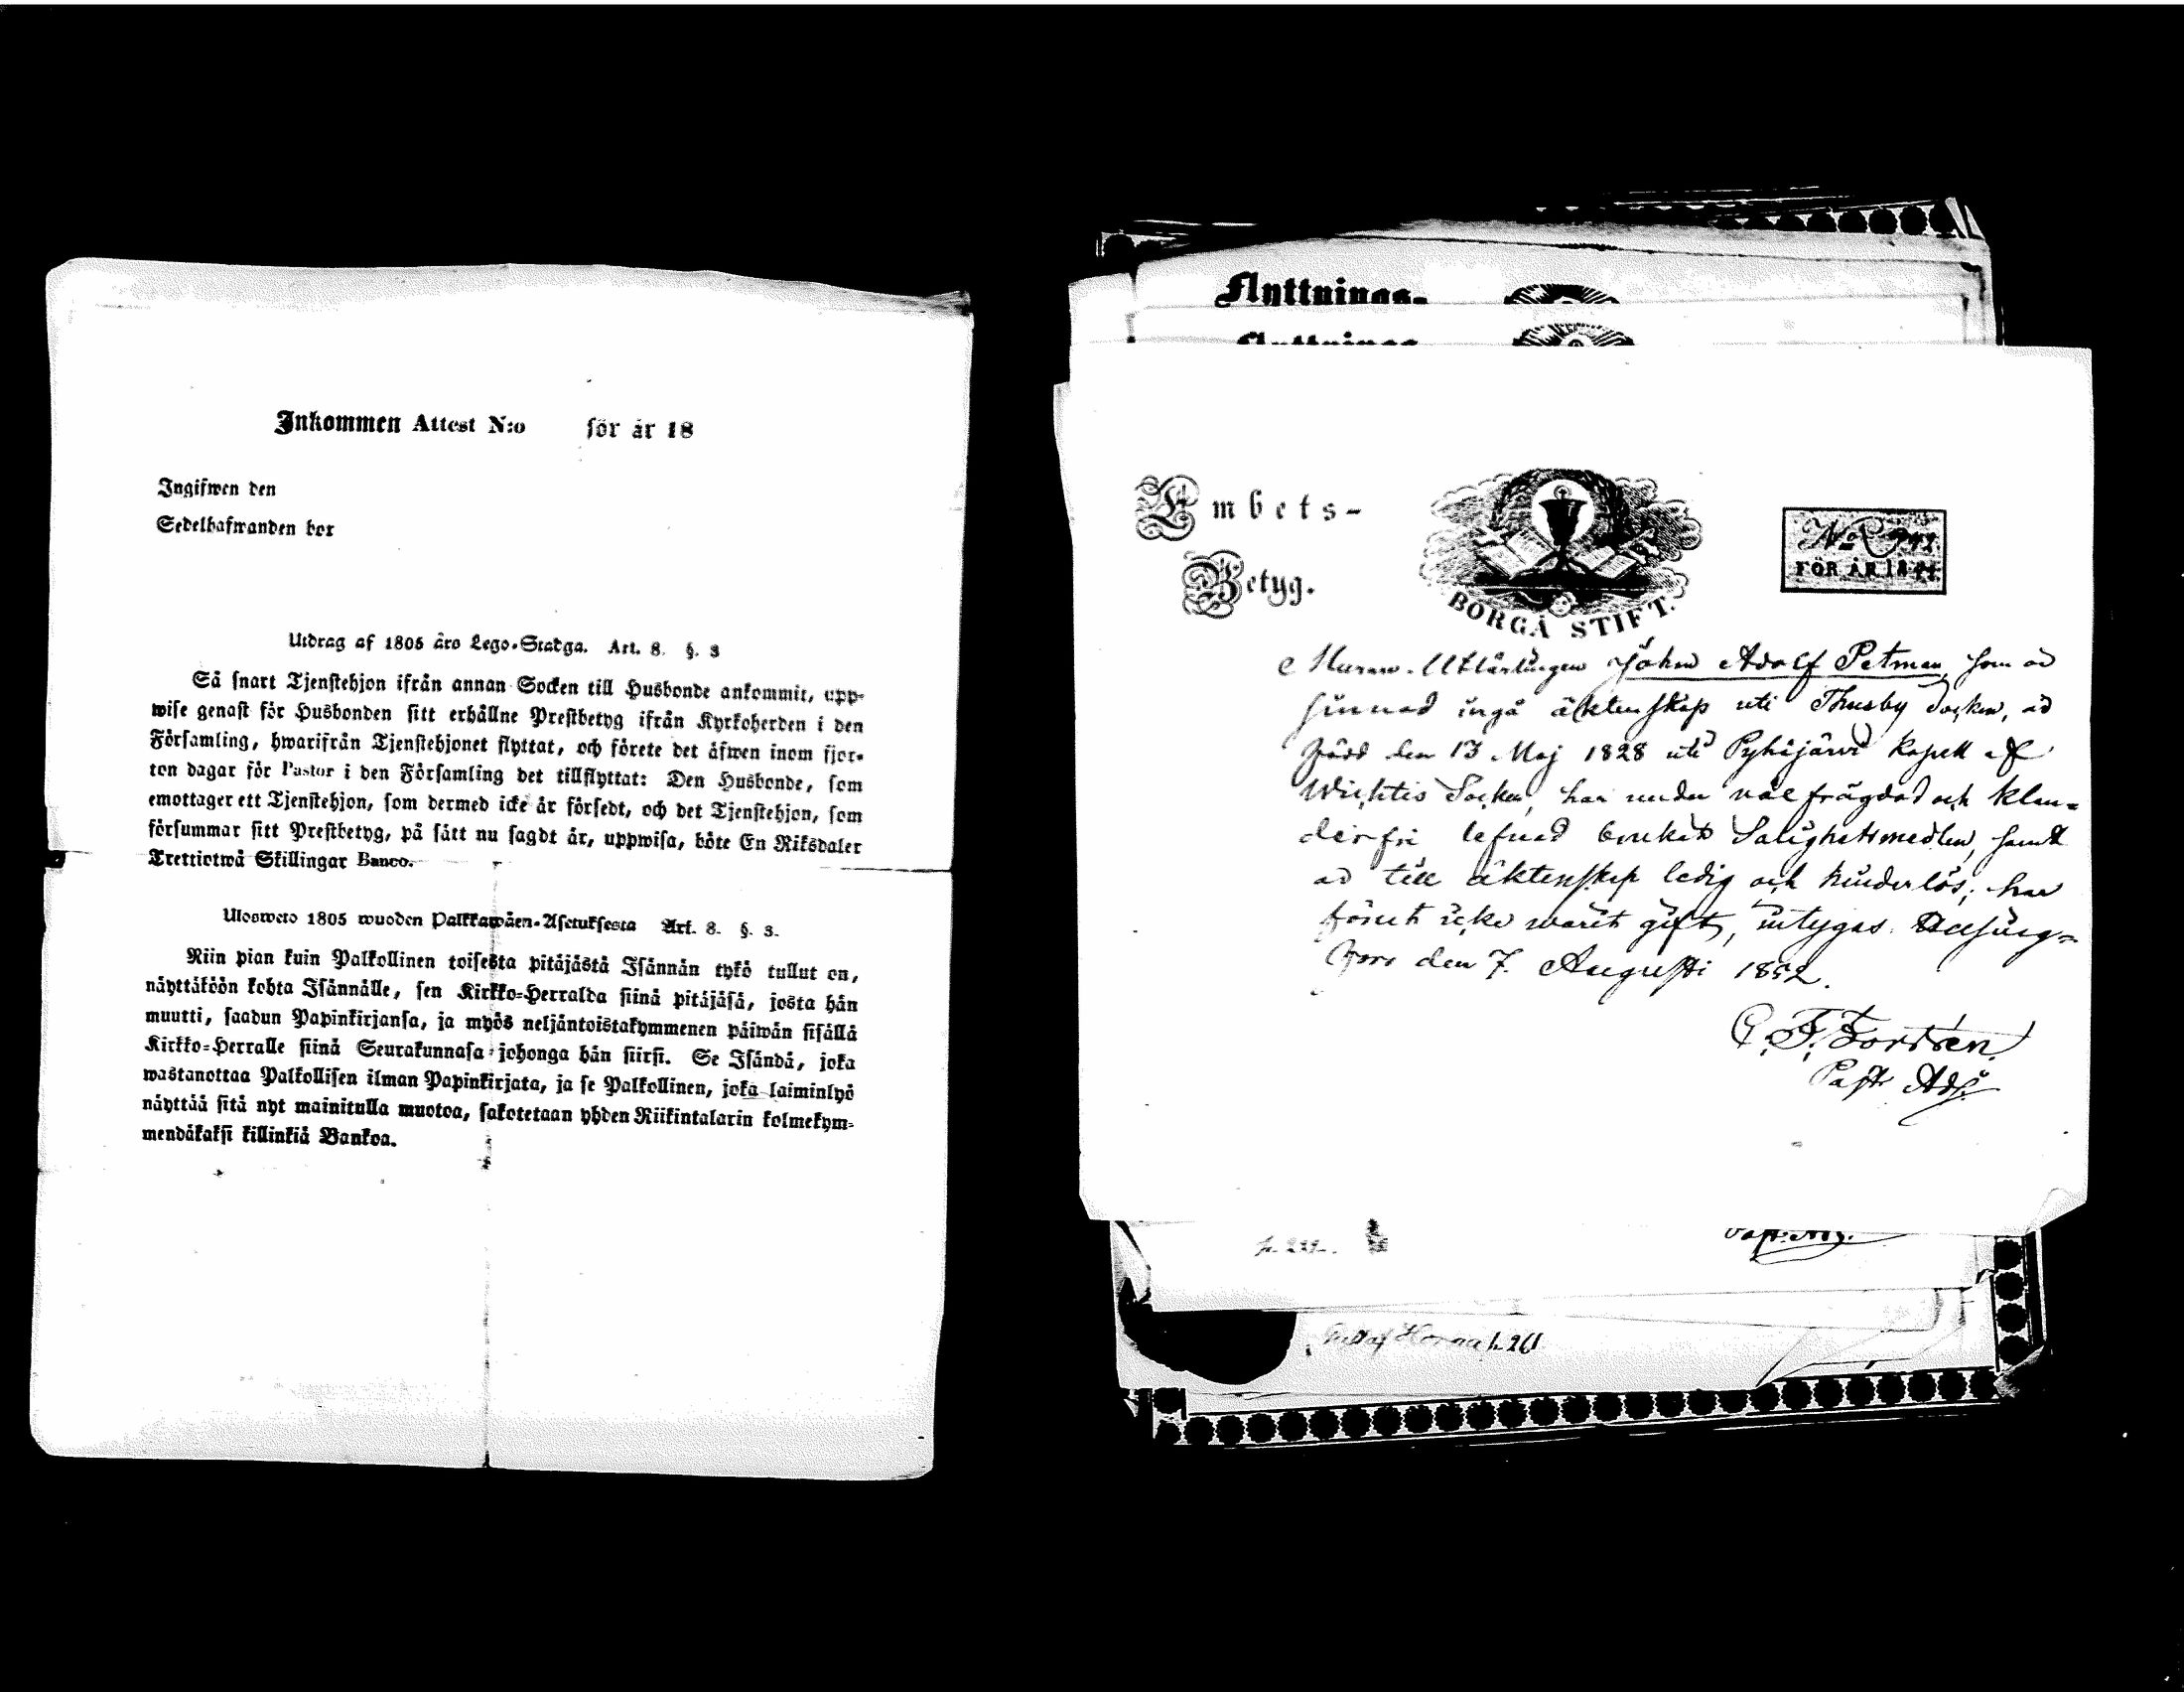 Inkommen Attest N:o för år 18
Ingifwen den
Sedelhafwanden bor
Utdrag af 1805 års Lego-Stadga. Art. 8. §. 3
Så snart Tjenstehjon ifrån annan Socken till Husbonde ankommit, upp-
wise genast för Husbonden sitt erhållne Prestbetyg ifrån Kyrkoherden i den
Församling, hwarifrån Tjenstehjonet flyttat, och förete det äfwen inom fjor-
ton dagar för Pastor i den Församling det tillflyttat: Den Husbonde, som
emottager ett Tjenstehjon, som dermed icke är försedt, och det Tjenstehjon, som
försummar sitt Prestbetyg, på sätt nu sagdt är, uppwisa, böte En Riksdaler
Trettiotwå Skillingar Banco.
Ulosweto 1805 wuoden Palkkawäen-Asetuksesta Art. 8. §. 3.
Niin pian kuin Palkollinen toisesta pitäjästä Isännän tykö tullut on,
näyttäköön kohta Isännälle, sen Kirkko-Herralda siinä pitäjäsä, josta hän
muutti, saadun Papinkirjansa, ja myös neljäntoistakymmenen päiwän sisällä
Kirkko-Herralle siinä Seurakunnasa johonga hän siirsi. Se Isändä, joka
wastanottaa Palkollisen ilman Papinkirjata, ja se Palkollinen, joka laiminlyö
näyttää sitä nyt mainitulla muotoa, sakotetaan yhden Riikintalarin kolmekym-
mendäkaksi killinkiä Bankoa.
Flyttnings-
Flyttnings
Embets-
Betyg.
BORGÅ STIFT.
No
FÖR ÅR 18
Murare-Utlärlingen Johan Adolf Petman, som är
sinnad ingå äktenskap uti Thusby Socken, är
född den 13 Maj 1828 uti Pyhäjärvi Kapell af
Wichtis Socken, har under välfrägdad och klan-
derfri lefnad brukat Salighetsmedlen, samt
är till äktenskap ledig och hinderlös; har
förut icke warit gift, intygas. Helsing-
fors den 7. Augusti 1852.
Past. Adj.
Past. Adj.
Gustaf